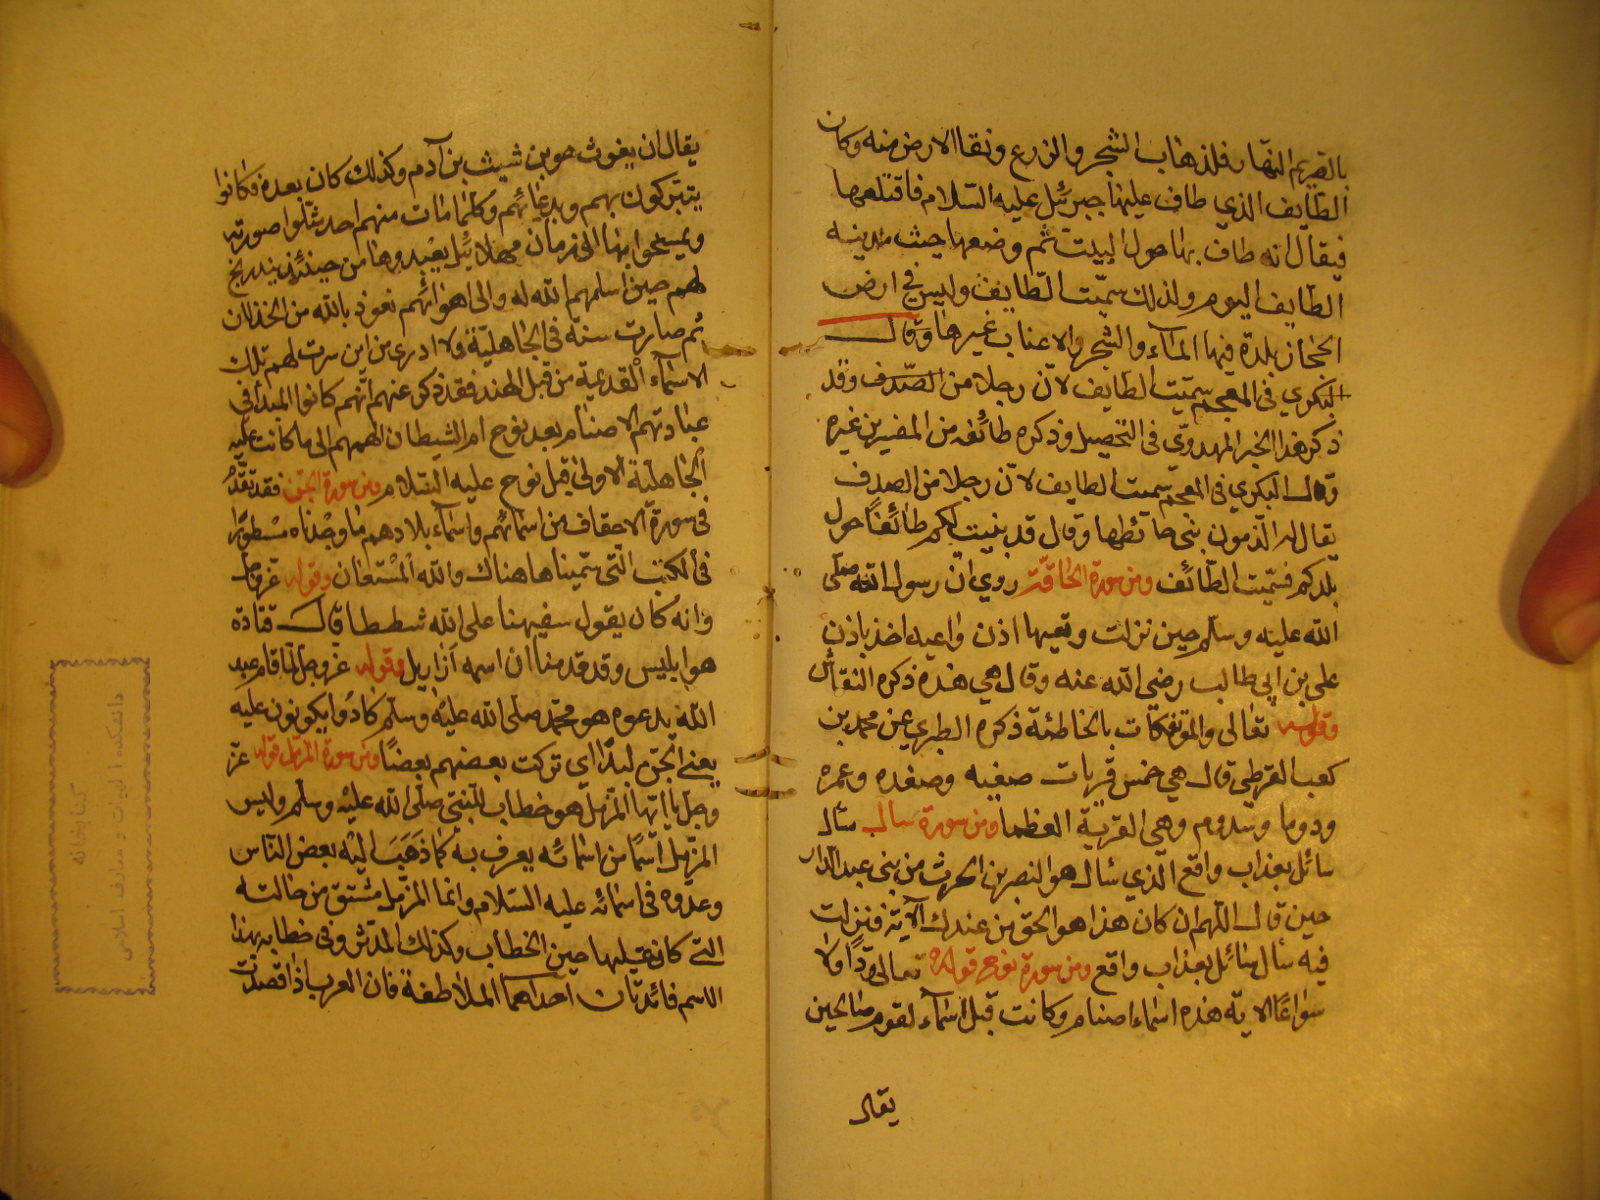 بالصريم النهار فلذهاب الشجر والزرع ونقا الارض منه وكان
الطايف الذي طاف عليها جبرئيل عليه السلام فاقتلعها
فيقال انه طاف بها حول البيت ثم وضعها حيث مدينه
الطايف اليوم ولذلك سميت الطايف وليس في ارض
الحجاز بلدة فيها الماء والشجر والاعناب غيرها وقال
البكري في المعجم سميت الطايف لان رجلا من الصدف وقد
ذكر هذا الخبر المهدوي في التحصيل وذكره طائفه من المفسرين غيره
وقال البكري في المعجم سميت الطايف لان رجلا من الصدف
يقال له الدمون بنى حائطها وقال قد بنيت لكم طائفا حول
بلدكم فسميت الطائف ومن سورة الحاقة روي ان رسول الله صلى
الله عليه وسلم حين نزلت وتعيها اذن واعيه اخذ باذن
علي بن ابي طالب رضي الله عنه وقال هي هذه ذكره النقاش
وقوله تعالى والمؤتفكات بالخاطئة ذكره الطبري عن محمد بن
كعب القرظي قال هي خمس قريات صفيه وصفده وعمره
ودوما وسدوم وهي القرية العظما ومن سورة سال سأل
سائل بعذاب واقع الذي سأل هو النضر بن الحرث من بني عبد الدار
حين قال اللهم ان كان هذا هو الحق من عندك الآية فنزلت
فيه سأل سائل بعذاب واقع ومن سورة نوح قوله تعالى ودا ولا
سواعا الاية هذه اسماء اصنام وكانت قبل اسماء لقوم صالحين
يقال
يقال ان يغوث هو بن شيث بن آدم وكذلك كان بعده فكانوا
يتبركون بهم وبدعائهم وكلما مات منهم احد مثلوا صورته
ويمسحوا بها الى زمان مهلائيل يعبدوها من حينئذ بتدريج
لهم حين اسلمهم الله له والى اهوائهم نعوذ بالله من الخذلان
ثم صارت سنة في الجاهلية ولا ادري من اين سرت لهم تلك
الاسماء القديمة من قبل الهند فقد ذكر عنهم انهم كانوا المبدأ في
عبادتهم الاصنام بعد نوح ام الشيطان الهمهم الى ما كانت عليه
الجاهلية الاولى قبل نوح عليه السلام ومن سورة الجن فقد تقدم
في سورة الاحقاف من اسمائهم واسماء بلادهم ما وجدناه مسطورا
في الكتب التي سميناها هناك والله المستعان وقوله عز وجل
وانه كان يقول سفيهنا على الله شططا قال قتادة
هو ابليس وقد قدمنا ان اسمه آزازيل وقوله عز وجل لما قام عبد
الله يدعوه هو محمد صلى الله عليه وسلم كادوا يكونون عليه
يعني الجن لبدا اي تركت بعضهم بعضا ومن سورة المزمل قوله عز
وجل يا ايها المزمل هو خطاب للنبي صلى الله عليه وسلم وليس
المزمل اسما من اسمائه يعرف به كما ذهب اليه بعض الناس
وعدوه في اسمائه عليه السلام وانما المزمل مشتق من حالته
التي كان عليها حين الخطاب وكذلك المدثر وفي خطابه بهذا
الاسم فائدتان احداهما الملاطفة فان العرب اذا قصدت
كتابخانه
دانشكده الهيات و معارف اسلامى